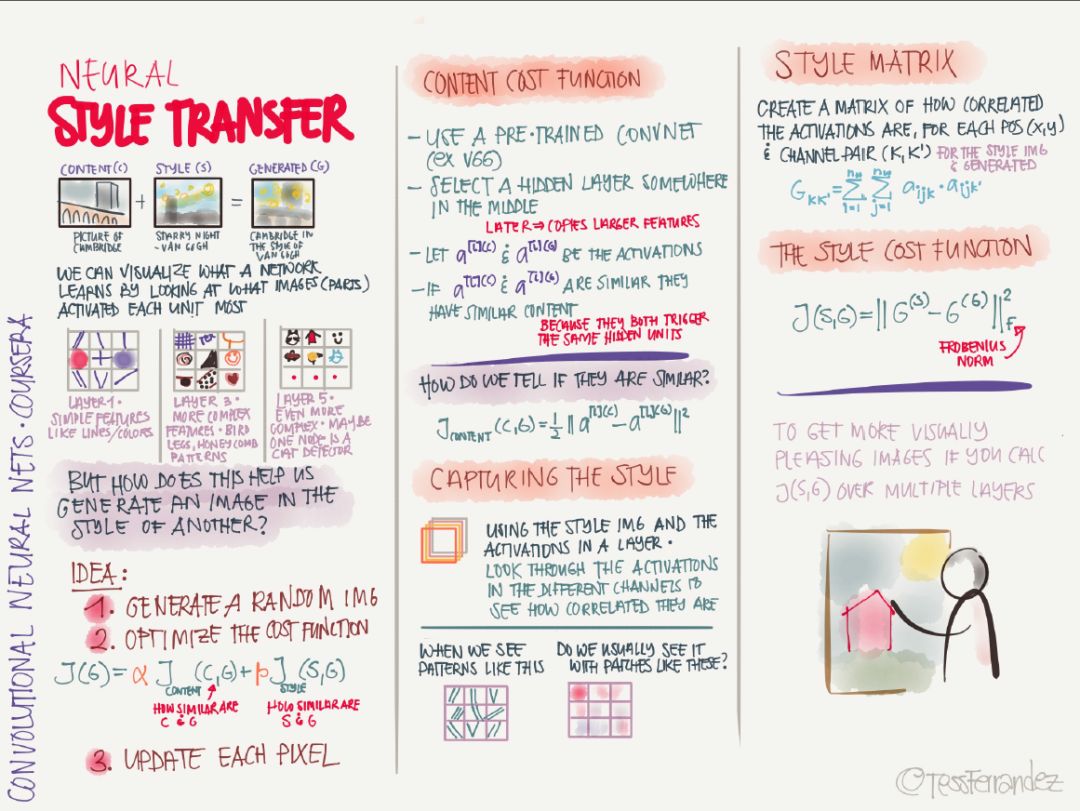 CONVOLUTIONAL NEURAL NETS · COURSERA
NEURAL
STYLE TRANSFER
CONTENT(C) STYLE(S) GENERATED(G)
+ =
PICTURE OF
CAMBRIDGE
STARRY NIGHT
- VAN GOGH
CAMBRIDGE IN
THE STYLE OF
VAN GOGH
WE CAN VISUALIZE WHAT A NETWORK
LEARNS BY LOOKING AT WHAT IMAGES (PARTS)
ACTIVATED EACH UNIT MOST
LAYER 1 ·
SIMPLE FEATURES
LIKE LINES/COLORS
LAYER 3 ·
MORE COMPLEX
FEATURES · BIRD
LEGS, HONEYCOMB
PATTERNS
LAYER 5 ·
EVEN MORE
COMPLEX · MAYBE
ONE NODE IS A
CAT DETECTOR
BUT HOW DOES THIS HELP US
GENERATE AN IMAGE IN THE
STYLE OF ANOTHER?
IDEA:
1. GENERATE A RANDOM IMG
2. OPTIMIZE THE COST FUNCTION
J(G) = α J_CONTENT (C,G) + β J_STYLE (S,G)
HOW SIMILAR ARE
C & G
HOW SIMILAR ARE
S & G
3. UPDATE EACH PIXEL
CONTENT COST FUNCTION
- USE A PRE-TRAINED CONVNET
(EX VGG)
- SELECT A HIDDEN LAYER SOMEWHERE
IN THE MIDDLE
LATER ⇒ COPIES LARGER FEATURES
- LET a^[l](C) & a^[l](G) BE THE ACTIVATIONS
- IF a^[l](C) & a^[l](G) ARE SIMILAR THEY
HAVE SIMILAR CONTENT
BECAUSE THEY BOTH TRIGGER
THE SAME HIDDEN UNITS
HOW DO WE TELL IF THEY ARE SIMILAR?
J_CONTENT (C,G) = 1/2 || a^[l](C) - a^[l](G) ||²
CAPTURING THE STYLE
USING THE STYLE IMG AND THE
ACTIVATIONS IN A LAYER ·
LOOK THROUGH THE ACTIVATIONS
IN THE DIFFERENT CHANNELS TO
SEE HOW CORRELATED THEY ARE
WHEN WE SEE
PATTERNS LIKE THIS
DO WE USUALLY SEE IT
WITH PATCHES LIKE THESE?
STYLE MATRIX
CREATE A MATRIX OF HOW CORRELATED
THE ACTIVATIONS ARE, FOR EACH POS (X,Y)
& CHANNEL PAIR (K, K') FOR THE STYLE IMG
& GENERATED
G_KK' = Σ_{i=1}^{nH} Σ_{j=1}^{nW} a_ijk · a_ijk'
THE STYLE COST FUNCTION
J(S,G) = || G^(S) - G^(G) ||²_F
FROBENIUS
NORM
TO GET MORE VISUALLY
PLEASING IMAGES IF YOU CALC
J(S,G) OVER MULTIPLE LAYERS
©TessFerrandez